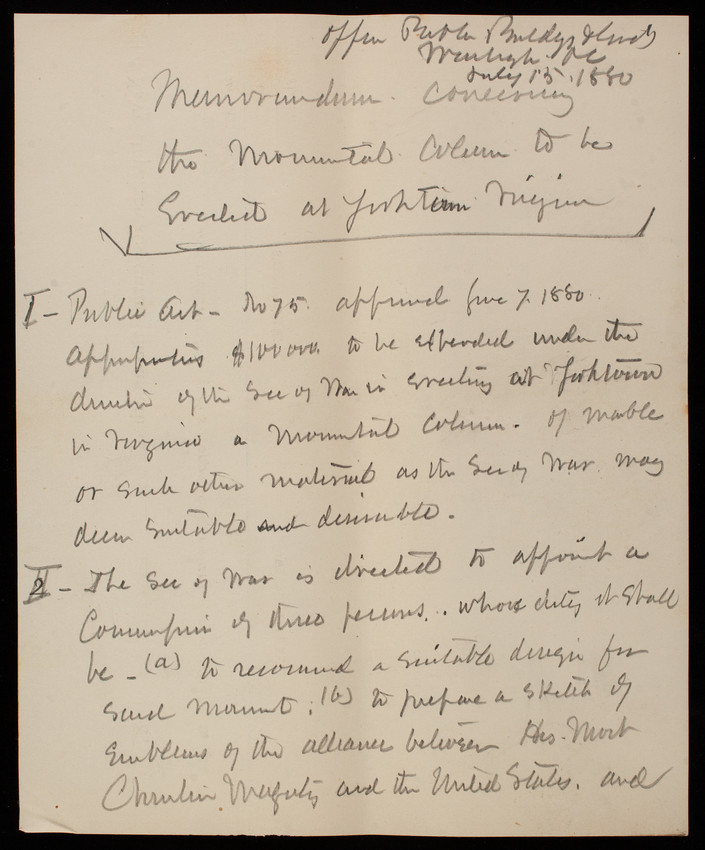 Office Public Buildgs & Grds
Washgtn DC
July 15, 1880
Memorandum Concerning
the Monumental Column to be
Erected at Yorktown Virginia
I - Public Act - No 75. approved June 7. 1880.
appropriates $100,000. to be expended under the
direction of the Sec of War in erecting at Yorktown
in Virginia a Monumental Column. of marble
or such other material as the Sec of War may
deem suitable and desirable.
II - The Sec of War is directed to appoint a
Commission of three persons. whose duty it shall
be - (a) to recommend a suitable design for
said monument; (b) to prepare a sketch of
Emblems of the alliance between His Most
Christian Majesty and the United States. and